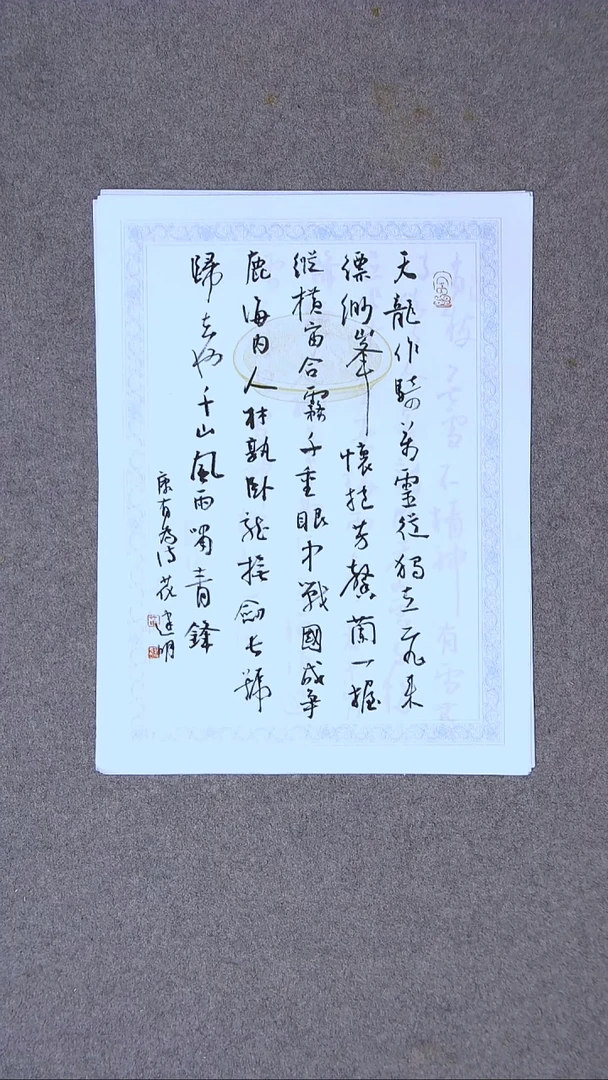 天龍作騎萬靈從獨立飛來
縹緲峯懷抱芳馨蘭一握
縱橫宙合霧千重眼中戰國成爭
鹿海内人材孰臥龍撫劍長號
歸去也千山風雨嘯青鋒
康有為詩 建明